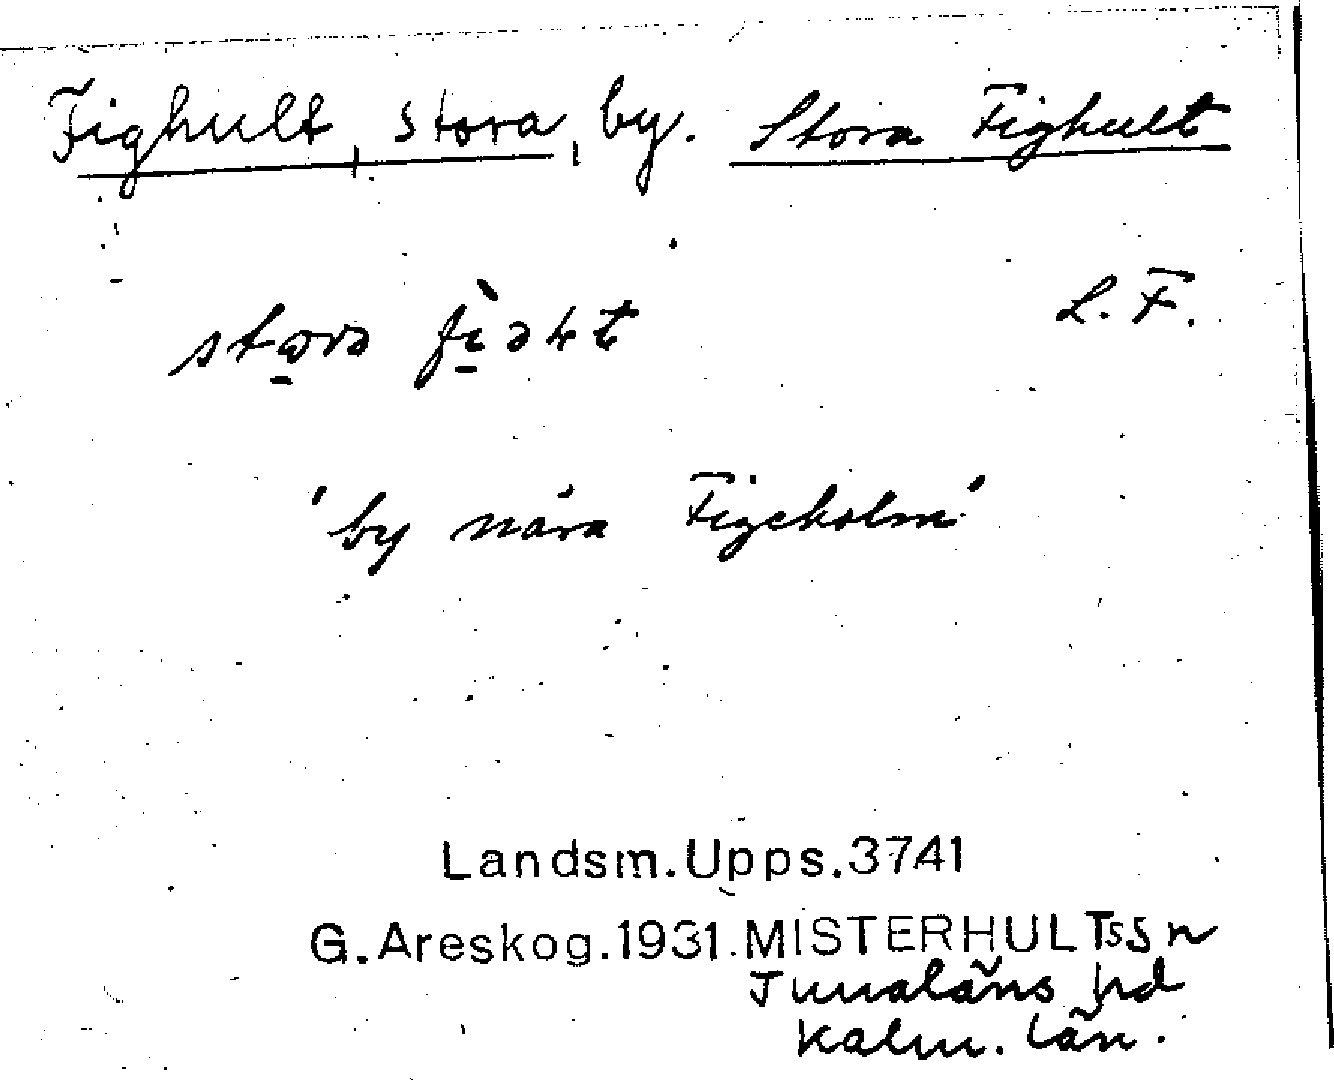 Fighult, stora, by. Stora Fighult
L. F.
'by nära Figeholm'
Landsm.Upps.3741
G.Areskog.1931.MISTERHULTs sn
Tunaläns hd
Kalm. län.